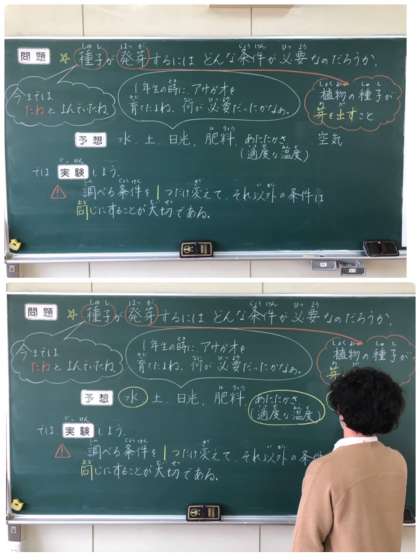 問題 ☆種子が発芽するには どんな条件が必要なのだろうか。
しゅし はつが じょうけん ひつよう
今までは
たねとよんでいたね
1年生の時に、アサガオを
育てたよね、何が必要だったかなぁ。
植物の種子が
芽を出すこと
予想 水、土、日光、肥料、あたたかさ 空気
(適度な温度)
では 実験 しよう。
⚠ 調べる条件を1つだけ変えて、それ以外の条件は
同じにすることが大切である。
問題 ☆種子が発芽するには どんな条件が必要なのだろうか。
今までは
たねとよんでいたね
1年生の時に、アサガオを
育てたよね、何が必要だったかなぁ。
植物の種子が
芽
予想 水 土 日光、肥料 あたたかさ
(適度な温度)
では 実験 しよう。
⚠ 調べる条件を1つだけ変えて、それ以外の条件
同じにすることが大切である。